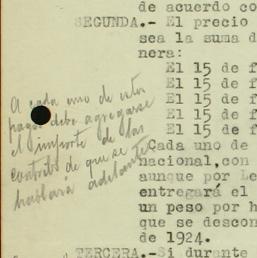 de acuerdo co
SEGUNDA.- El precio
sea la suma d
nera:
El 15 de f
El 15 de f
El 15 de f
El 15 de f
El 15 de f
A cada uno de estos
pagos debe agregarse
el importe de las
contribs de que se
hablará adelante
Cada uno de
nacional, con
aunque por Le
entregará el
un peso por h
que se descon
de 1924.
TERCERA.- Si durante